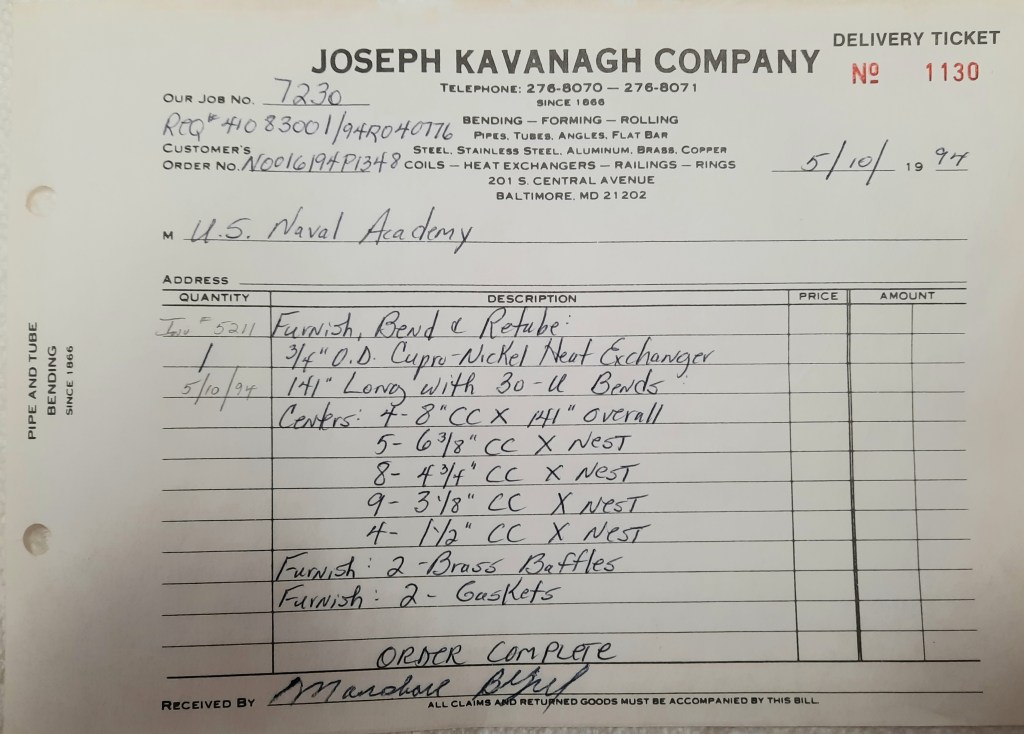 DELIVERY TICKET
JOSEPH KAVANAGH COMPANY
Nº 1130
TELEPHONE: 276-8070 — 276-8071
SINCE 1866
OUR JOB NO. 7230
BENDING — FORMING — ROLLING
REQ# 41083001/94R040776
PIPES, TUBES, ANGLES, FLAT BAR
CUSTOMER'S
STEEL, STAINLESS STEEL, ALUMINUM, BRASS, COPPER
ORDER NO. N0016194P1348
COILS — HEAT EXCHANGERS — RAILINGS — RINGS
5/10/ 19 94
201 S. CENTRAL AVENUE
BALTIMORE, MD 21202
M U.S. Naval Academy
ADDRESS
QUANTITY DESCRIPTION PRICE AMOUNT
Inv # 5211 Furnish, Bend & Retube:
1 3/4" O.D. Cupro-Nickel Heat Exchanger
5/10/94 141" Long with 30-U Bends
Centers: 4- 8" CC X 141" overall
5- 6 3/8" CC X NEST
8- 4 3/4" CC X NEST
9- 3 1/8" CC X NEST
4- 1 1/2" CC X NEST
Furnish: 2 - Brass Baffles
Furnish: 2 - Gaskets
ORDER COMPLETE
RECEIVED BY Marshall
ALL CLAIMS AND RETURNED GOODS MUST BE ACCOMPANIED BY THIS BILL
PIPE AND TUBE
BENDING
SINCE 1866